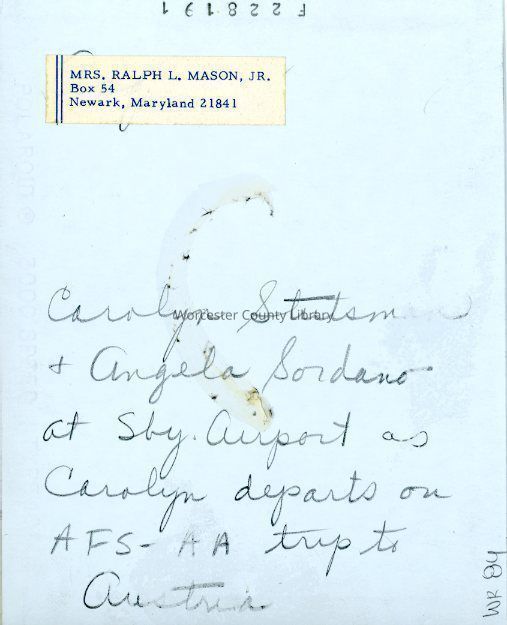 F228191
MRS. RALPH L. MASON, JR.
Box 54
Newark, Maryland 21841
Carolyn Stutsman
Worcester County Library
+ Angela Sordano
at Sby. Airport as
Carolyn departs on
AFS-AA trip to
Austria
WR 84